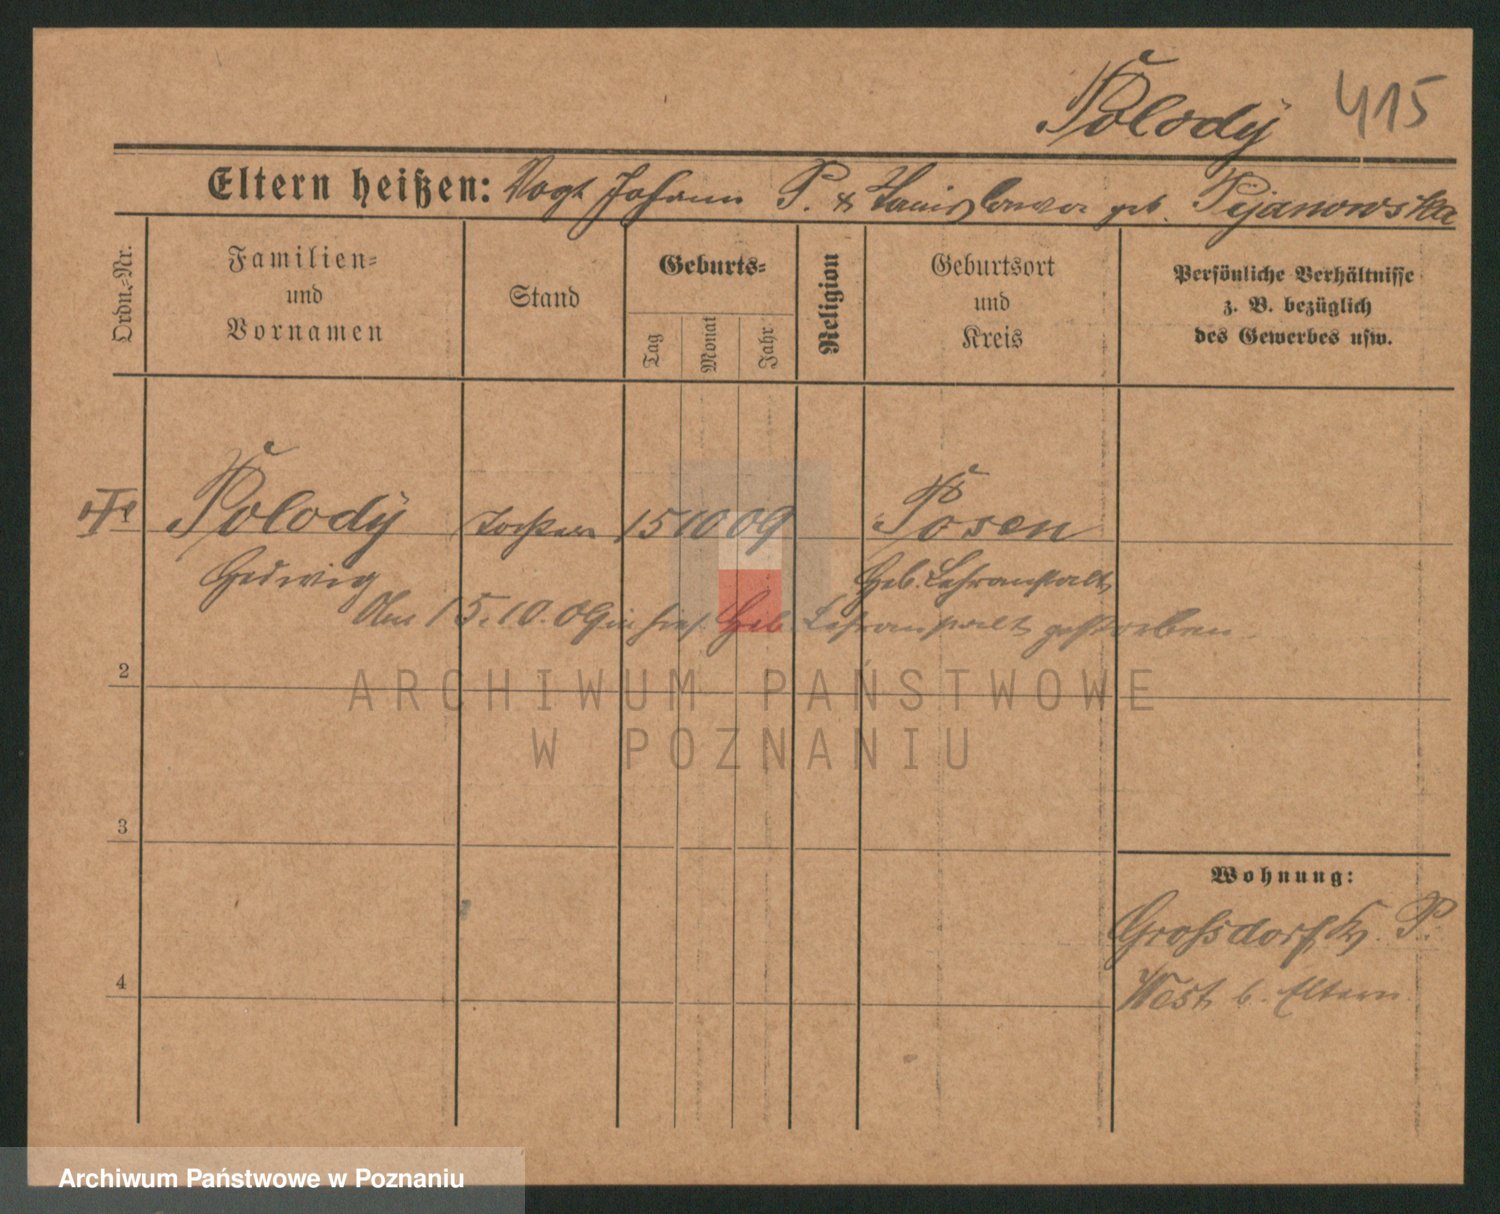 Polody 415
Eltern heißen: Vogt Johann P. & Stanislawa geb. Pijanowska
Ordn.-Nr.
Familien-
und
Vornamen
Stand
Geburts-
Tag
Monat
Jahr
Religion
Geburtsort
und
Kreis
Persönliche Verhältnisse
z. B. bezüglich
des Gewerbes usw.
1 Polody Tochter 15 10 09 Posen
Hedwig Heb. Lehranstalt
Am 15.10.09 in hies. Heb. Lehranstalt gestorben.
2
ARCHIWUM PAŃSTWOWE
W POZNANIU
3
Wohnung:
Grossdorf, P.
4
West, b. Eltern.
Archiwum Państwowe w Poznaniu